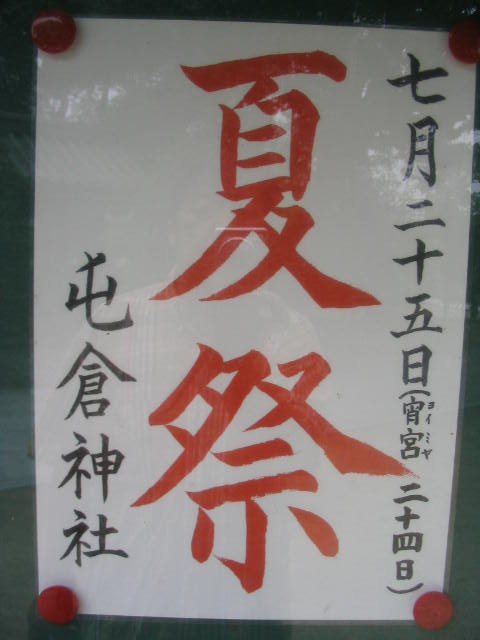 七月二十五日(宵宮ヨイミヤ 二十四日)
夏祭
屯倉神社